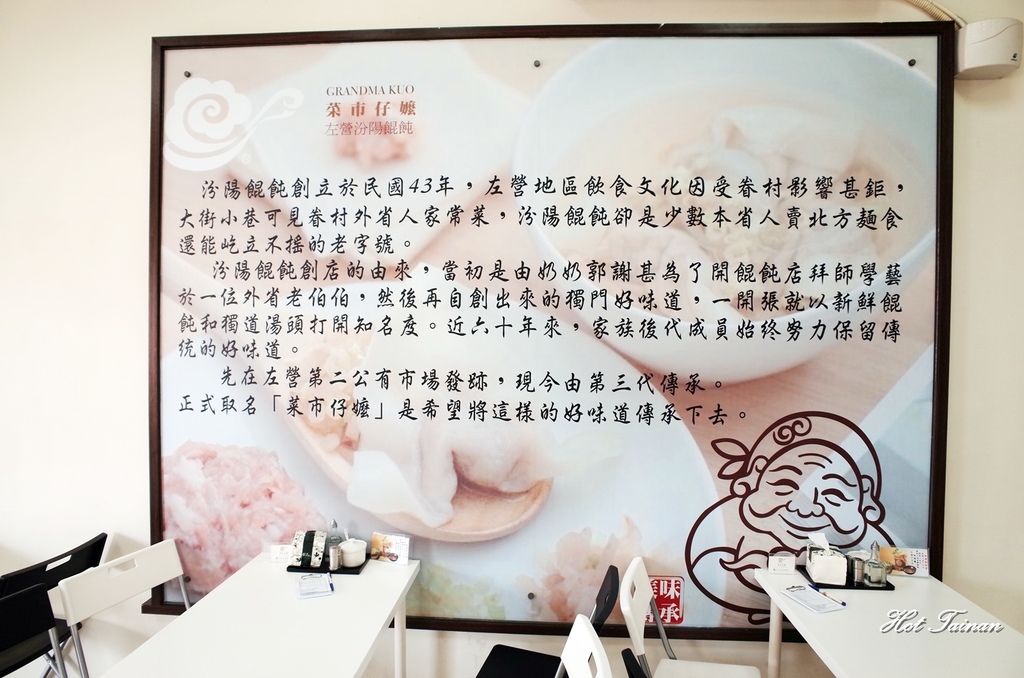 GRANDMA KUO
菜市仔嬤
左營汾陽餛飩
汾陽餛飩創立於民國43年，左營地區飲食文化因受眷村影響甚鉅，
大街小巷可見眷村外省人家常菜，汾陽餛飩卻是少數本省人賣北方麵食
還能屹立不搖的老字號。
汾陽餛飩創店的由來，當初是由奶奶郭謝甚為了開餛飩店拜師學藝
於一位外省老伯伯，然後再自創出來的獨門好味道，一開張就以新鮮餛
飩和獨道湯頭打開知名度。近六十年來，家族後代成員始終努力保留傳
統的好味道。
先在左營第二公有市場發跡，現今由第三代傳承。
正式取名「菜市仔嬤」是希望將這樣的好味道傳承下去。
味
承
Hot Tainan